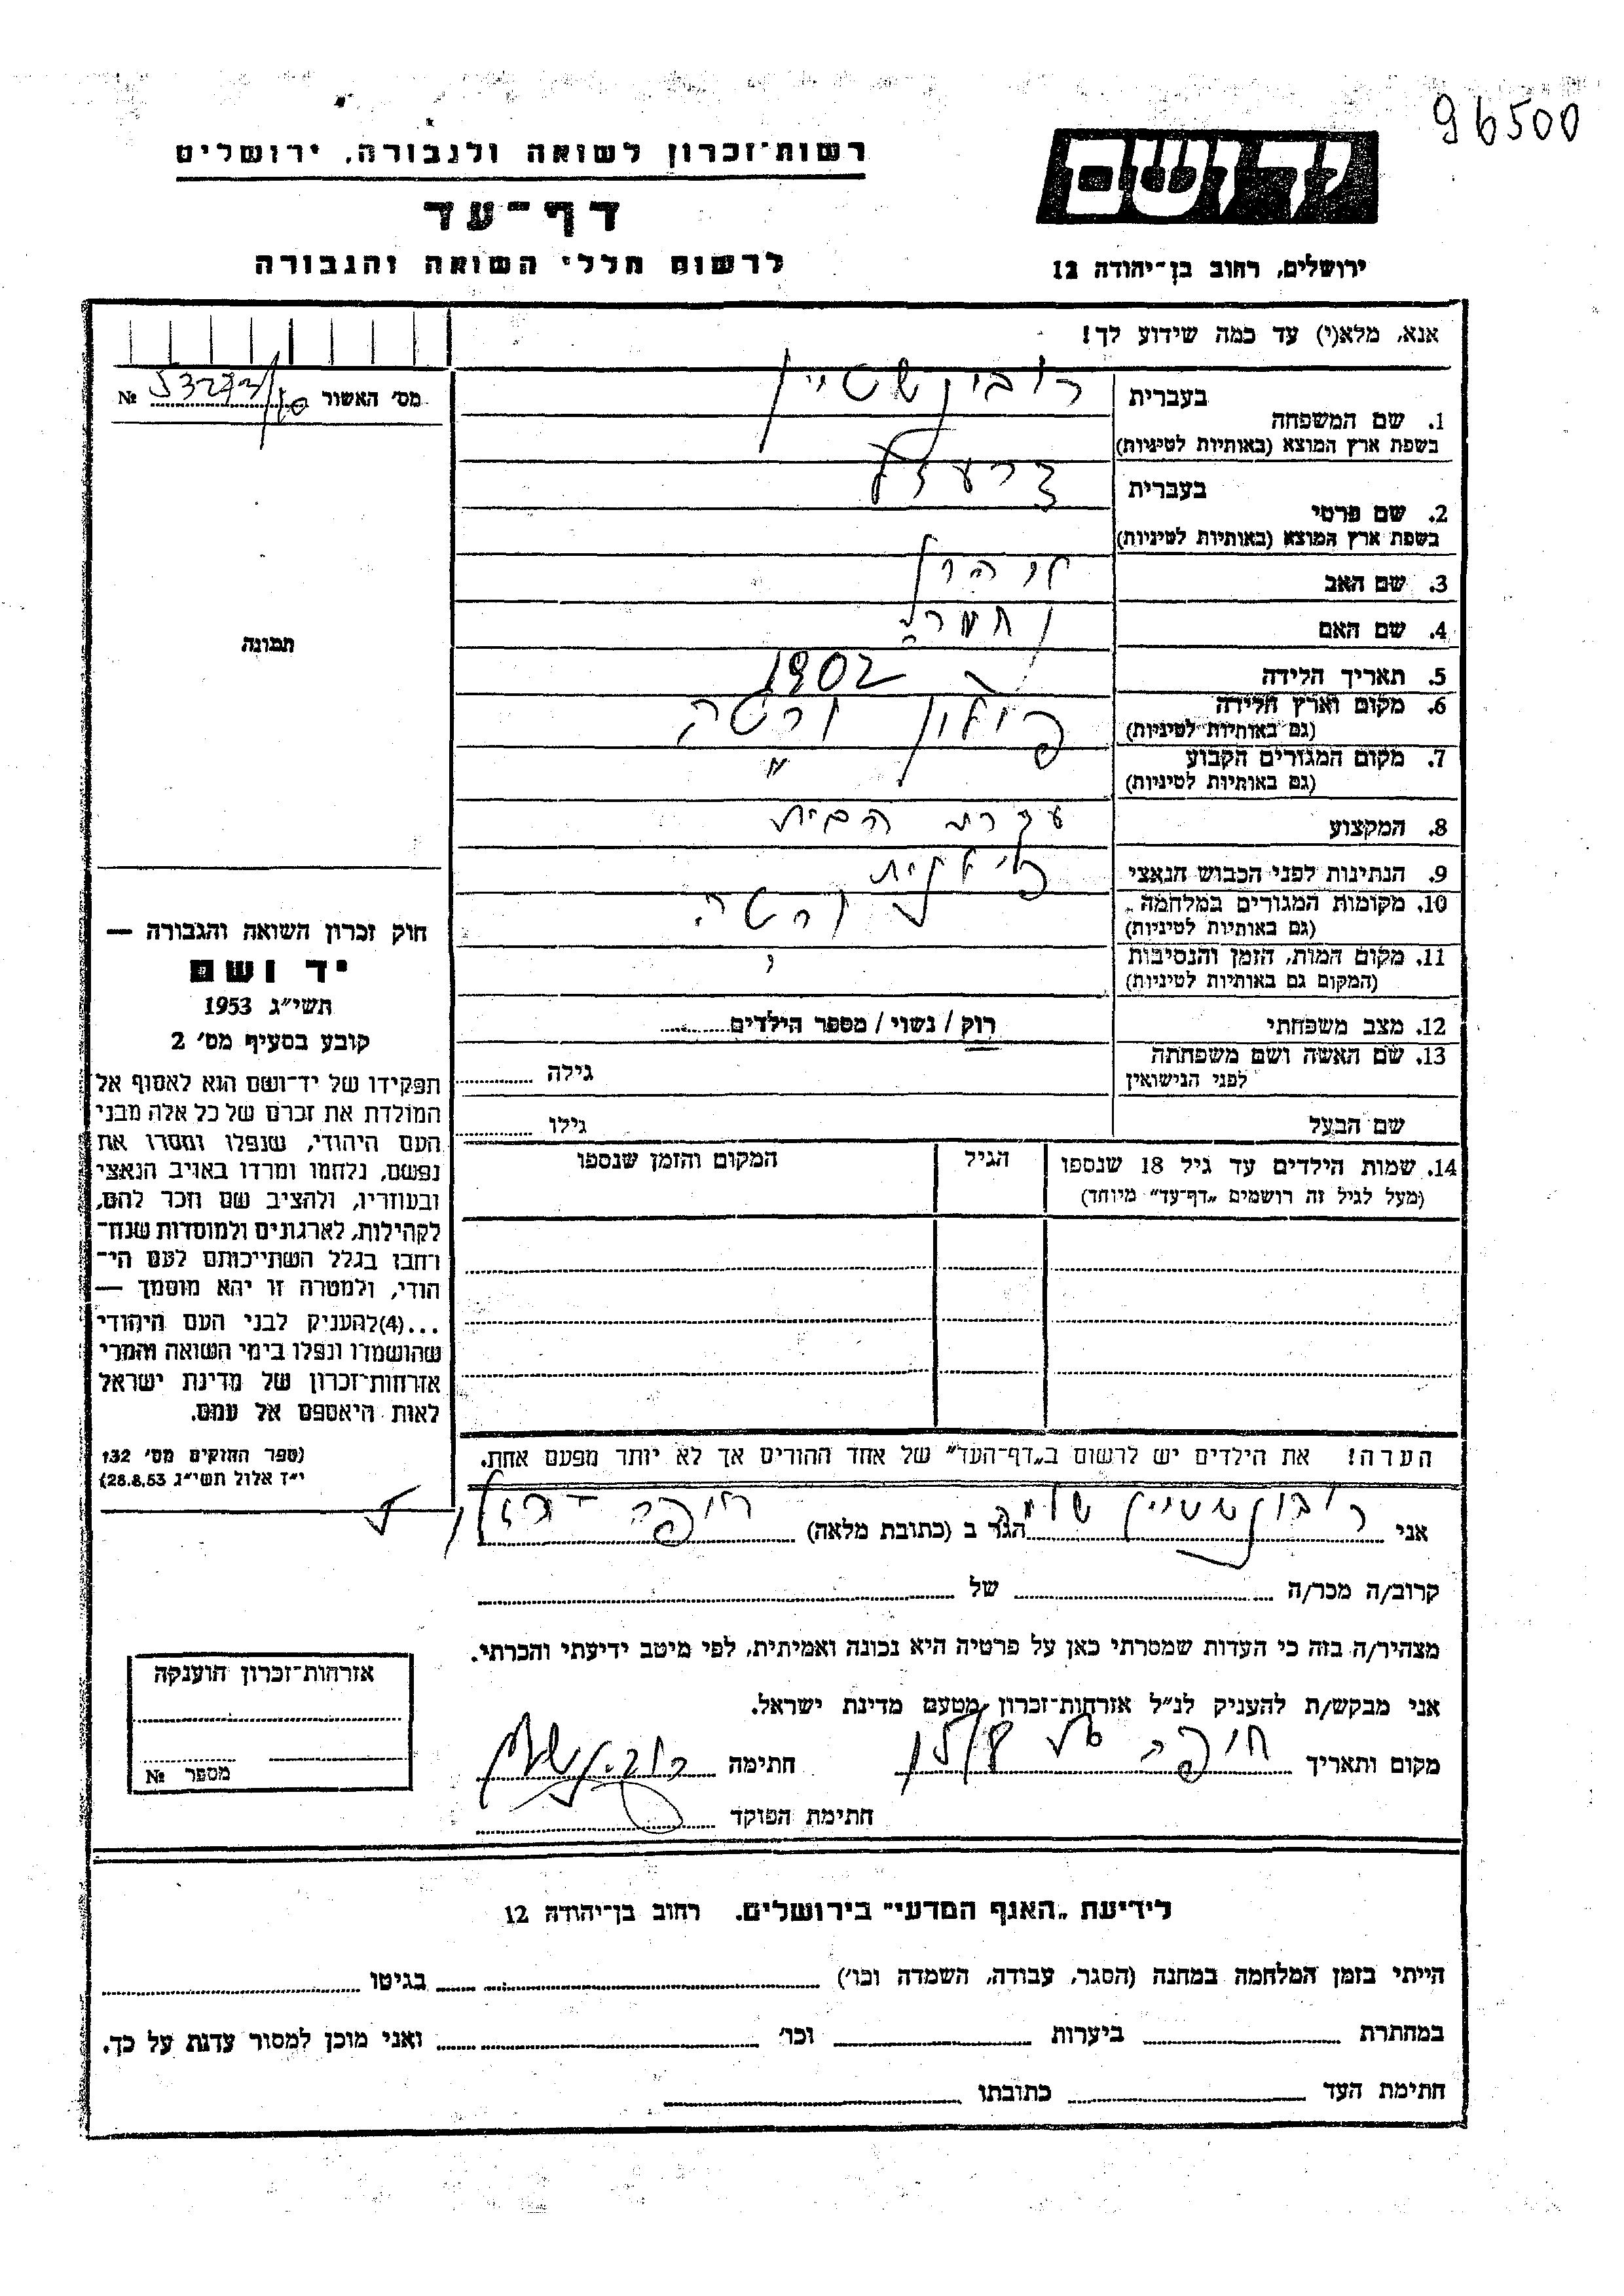 96500
יד ושם
ירושלים, רחוב בן-יהודה 12
רשות-זכרון לשואה ולגבורה, ירושלים
דף-עד
לרשום חללי השואה והגבורה
אנא, מלא(י) עד כמה שידוע לך!
מס' האשור №
תמונה
1. שם המשפחה בעברית רובינשטיין
בשפת ארץ המוצא (באותיות לטיניות)
2. שם פרטי בעברית
בשפת ארץ המוצא (באותיות לטיניות)
3. שם האב
4. שם האם
5. תאריך הלידה 1902
6. מקום וארץ הלידה פולין ורשה
(גם באותיות לטיניות)
7. מקום המגורים הקבוע "
(גם באותיות לטיניות)
8. המקצוע עקרת הבית
9. הנתינות לפני הכבוש הנאצי
10. מקומות המגורים במלחמה ורשה
(גם באותיות לטיניות)
11. מקום המות, הזמן והנסיבות
(המקום גם באותיות לטיניות)
12. מצב משפחתי רוק / נשוי / מספר הילדים
13. שם האשה ושם משפחתה
לפני הנישואין גילה
שם הבעל גילו
14. שמות הילדים עד גיל 18 שנספו
(מעל לגיל זה רושמים „דף-עד" מיוחד)
הגיל
המקום והזמן שנספו
הערה! את הילדים יש לרשום ב„דף-העד" של אחד ההורים אך לא יותר מפעם אחת.
חוק זכרון השואה והגבורה —
יד ושם
תשי"ג 1953
קובע בסעיף מס' 2
תפקידו של יד-ושם הוא לאסוף אל
המולדת את זכרם של כל אלה מבני
העם היהודי, שנפלו ומסרו את
נפשם, נלחמו ומרדו באויב הנאצי
ובעוזריו, ולהציב שם וזכר להם,
לקהילות, לארגונים ולמוסדות שנח-
רבו בגלל השתייכותם לעם הי-
הודי, ולמטרה זו יהא מוסמך —
...(4)להעניק לבני העם היהודי
שהושמדו ונפלו בימי השואה והמרי
אזרחות-זכרון של מדינת ישראל
לאות היאספם אל עמם.
(ספר החוקים מס' 132
י"ד אלול תשי"ג 28.8.53)
אני רובינשטיין הגר ב (כתובת מלאה) חיפה
קרוב/ה מכר/ה של
מצהיר/ה בזה כי העדות שמסרתי כאן על פרטיה היא נכונה ואמיתית, לפי מיטב ידיעתי והכרתי.
אני מבקש/ת להעניק לנ"ל אזרחות-זכרון מטעם מדינת ישראל.
מקום ותאריך חיפה חתימה
חתימת הפוקד
אזרחות-זכרון הוענקה
מספר №
לידיעת „האגף המדעי" בירושלים. רחוב בן-יהודה 12
הייתי בזמן המלחמה במחנה (הסגר, עבודה, השמדה וכו') בגיטו
במחתרת ביערות וכו' ואני מוכן למסור עדות על כך.
חתימת העד כתובתו